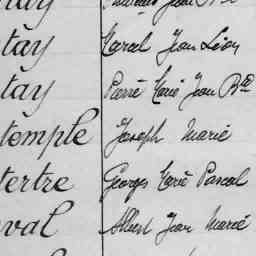 tay Marcel Jean Léon
tay Pierre Marie Jean Bte
temple Joseph Marie
tertre Georges Marie Pascal
val Albert Jean Marie